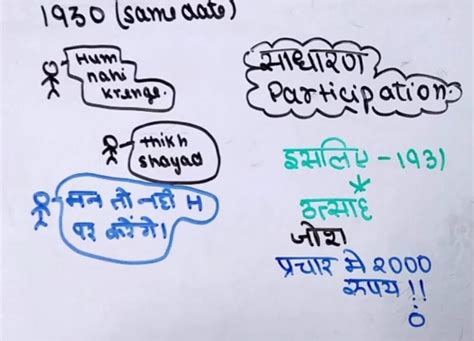 1930 (same date)
Hum
nahi
krenge.
साधारण
Participation
thikh
shayad
इसलिए - 1931
मन तो नही H
पर करेंगे।
उत्साह
जोश
प्रचार मे २000
रुपय !!